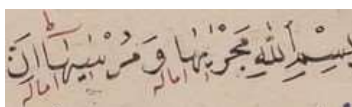 بِسْمِ اللَّهِ مَجْرٰىٰهَا وَ مُرْسٰىٰهَا اِنَّ
اماله اماله